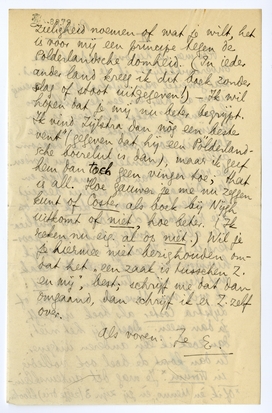 zieligheid noemen of wat je wilt, het
is voor mij een principe tegen de
Polderlandsche domheid. (In ieder
ander land kreeg ik dit boek zonder
slag of stoot uitgegeven!) – Ik wil
hopen dat je mij nu beter begrijpt.
Ik vind Zijlstra dan nog een beste
vent (gegeven dat hij een Polderland-
sche boerelul is dan), maar ik geef
hem dan toch geen vinger toe; that
is all. Hoe gauwer je me nu zeggen
kunt of Coster als boek bij Nijgh
uitkomt of niet, hoe beter. (Ik
reken nu eig. al op niet.) Wil je
je hiermee niet bezighouden om-
dat het "een zaak is tusschen Z.
en mij", best; schrijf me dat dan
omgaand, dan schrijf ik er Z. zelf
over.
als voren. Je E.